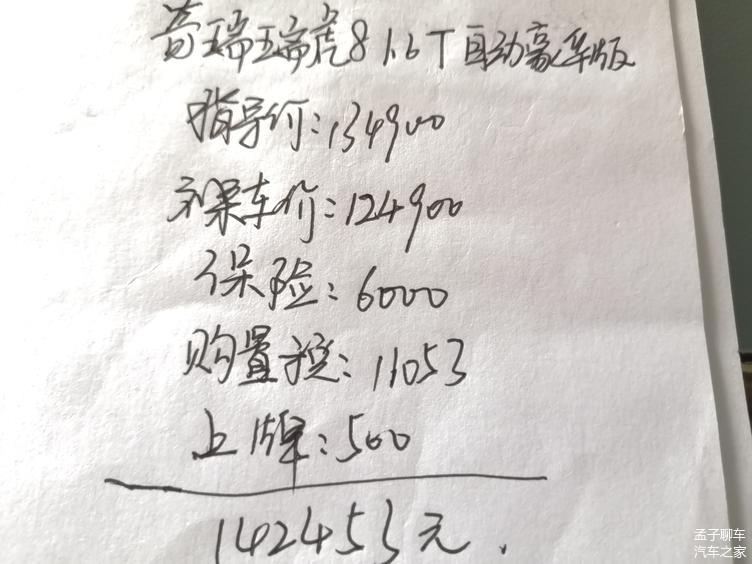 奇瑞瑞虎8 1.6T自动豪华版
指导价:134900
裸车价:124900
保险:6000
购置税:11053
上牌:500
142453元.
孟子聊车
汽车之家